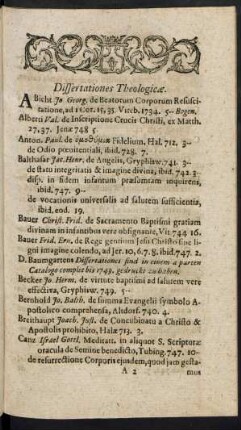 Dissertationes Theologicæ.
ABicht Jo. Georg. de Beatorum Corporum Resusci-
tatione, ad 1. Cor. 15, 35. Viteb. 1734. 5- Bogen.
Alberti Val. de Inscriptione Crucis Christi, ex Matth.
27, 37. Jenæ 748 5
Anton. Paul. de Fidelium, Hal. 712. 3-
de Odio pœnitentiali, ibid. 728. 7.
Balthasar Jac. Henr. de Angelis, Gryphisw. 741. 3-
de statu integritatis & imagine divina, ibid. 742 3-
disp. in fidem infantum præsumtam inquirens,
ibid. 747. 9--
de vocationis universalis ad salutem sufficientia,
ibid. eod. 19.
Bauer Christ. Frid. de Sacramento Baptismi gratiam
divinam in infantibus vere obsignante, Vit. 744 16.
Bauer Frid. Ern. de Rege gentium Jesu Christo sine
ligni imagine colendo, ad Jer. 10, 6. 7. 8. ibid. 747. 2.
D. Baumgartens Dissertationes sind in einem a parten
Catalogo completbis 1748. gedruckt zu haben.
Becker Jo. Herm. de virtute baptismi ad salutem vere
effectiva, Gryphisw. 749. 5--
Bernhold Jo. Balth. de summa Evangelii symbolo A-
postolico comprehensa, Altdorf. 740. 4.
Breithaupt Joach. Just. de Concubinatu a Christo &
Apostolis prohibito, Halæ 713. 3.
Canz Israel Gottl. Meditatt. in aliquot S. Scripturæ
oracula de Semine benedicto, Tubing. 747. 10-
de resurrectione Corporis ejusdem, quod jam gesta-
A 2 mus